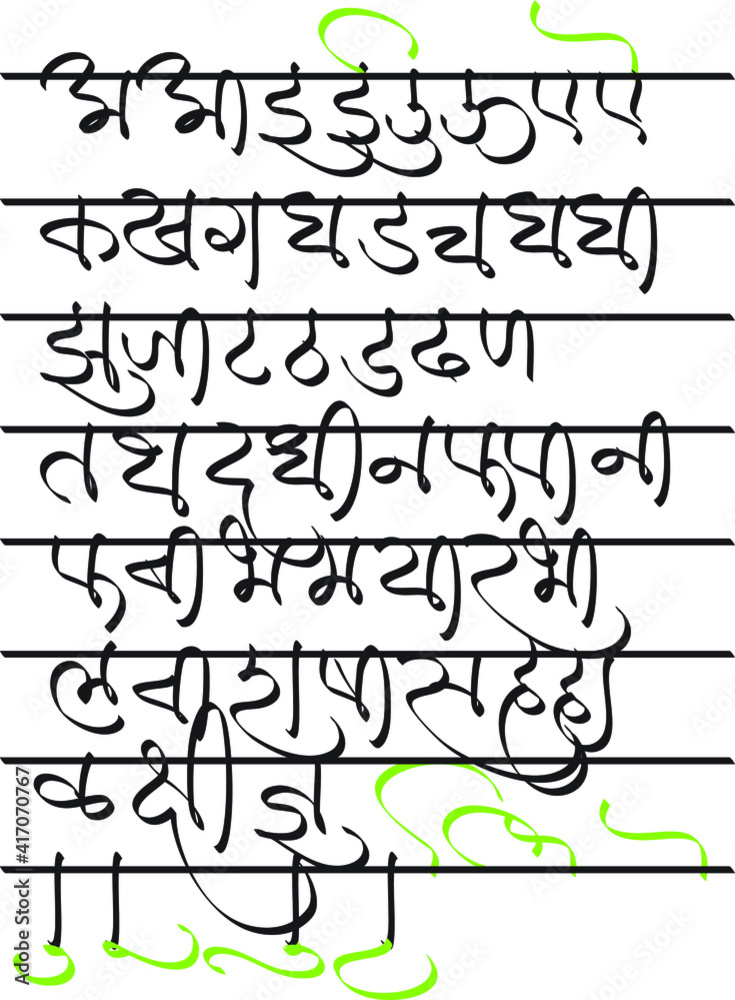 अ आ इ ई उ ऊ ए ऐ
क ख ग घ ङ च घ घी
झु ट ठ ड ढ ण
त थ द धी न नी
फ वी भ म यी र भी
लु वी षी स ह
ळ क्षी ज्ञ
Adobe Stock | #417070767